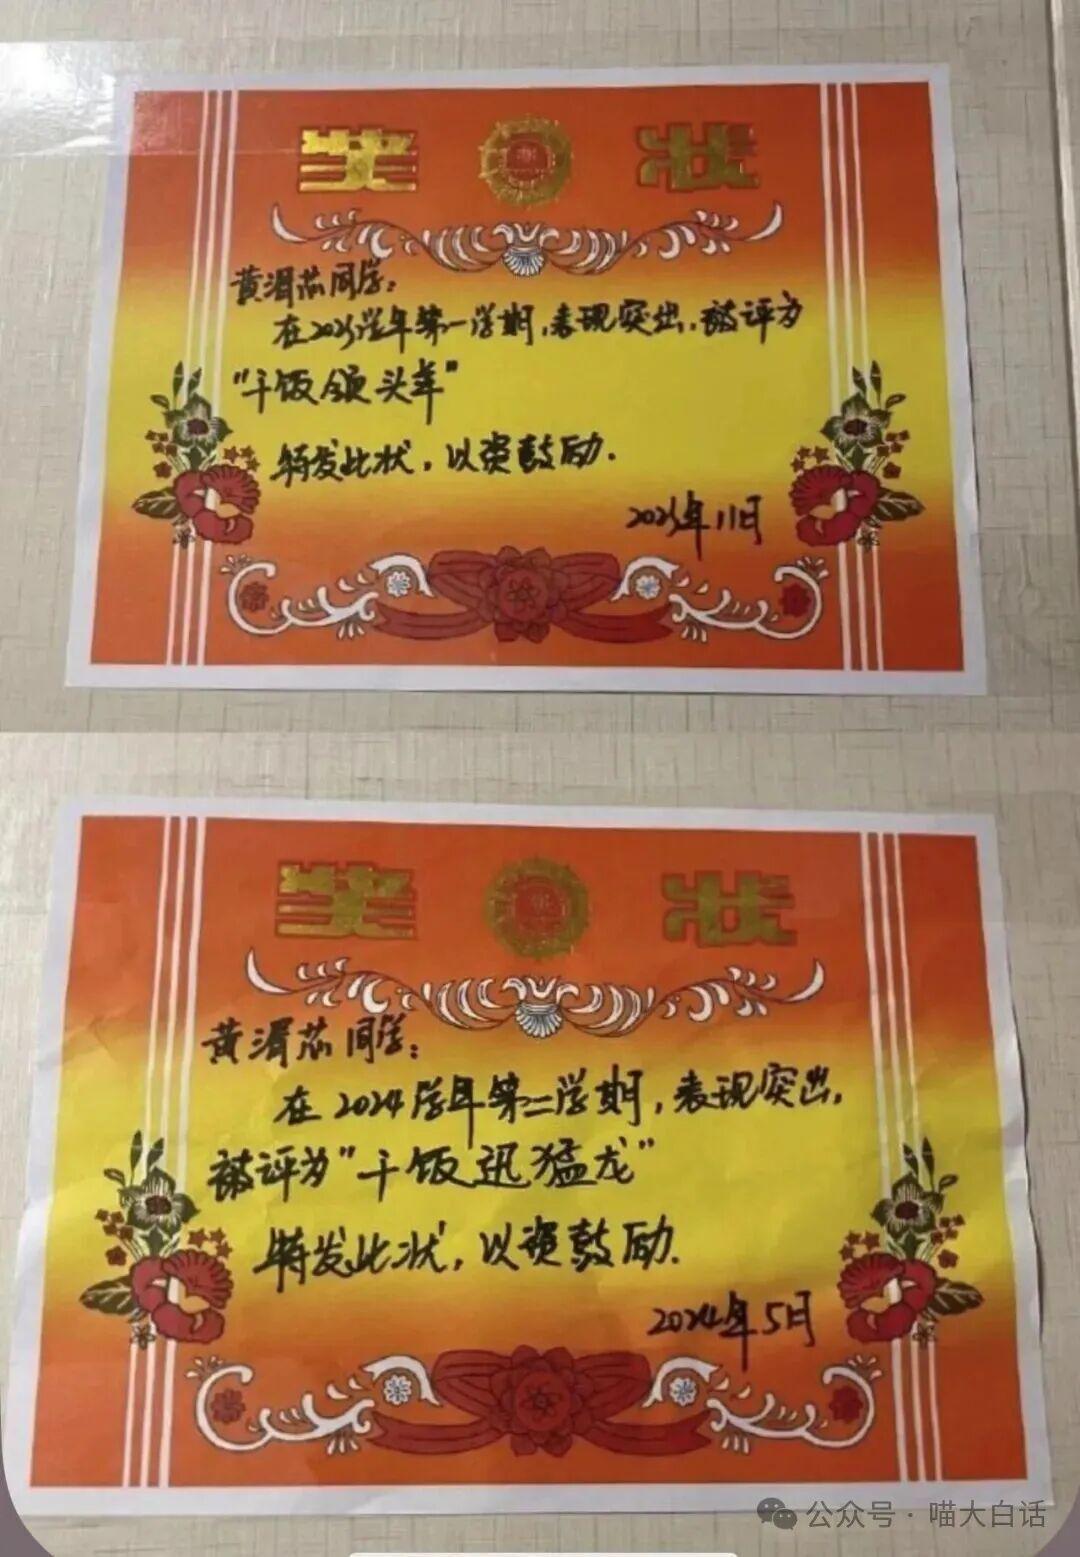 奖 状
黄湄芯同学:
在2023学年第一学期,表现突出,被评为
"干饭领头羊"
特发此状,以资鼓励.
2023年11日
奖 状
黄湄芯同学:
在2024学年第二学期,表现突出,
被评为"干饭迅猛龙"
特发此状,以资鼓励.
2024年5日
公众号·喵大白话